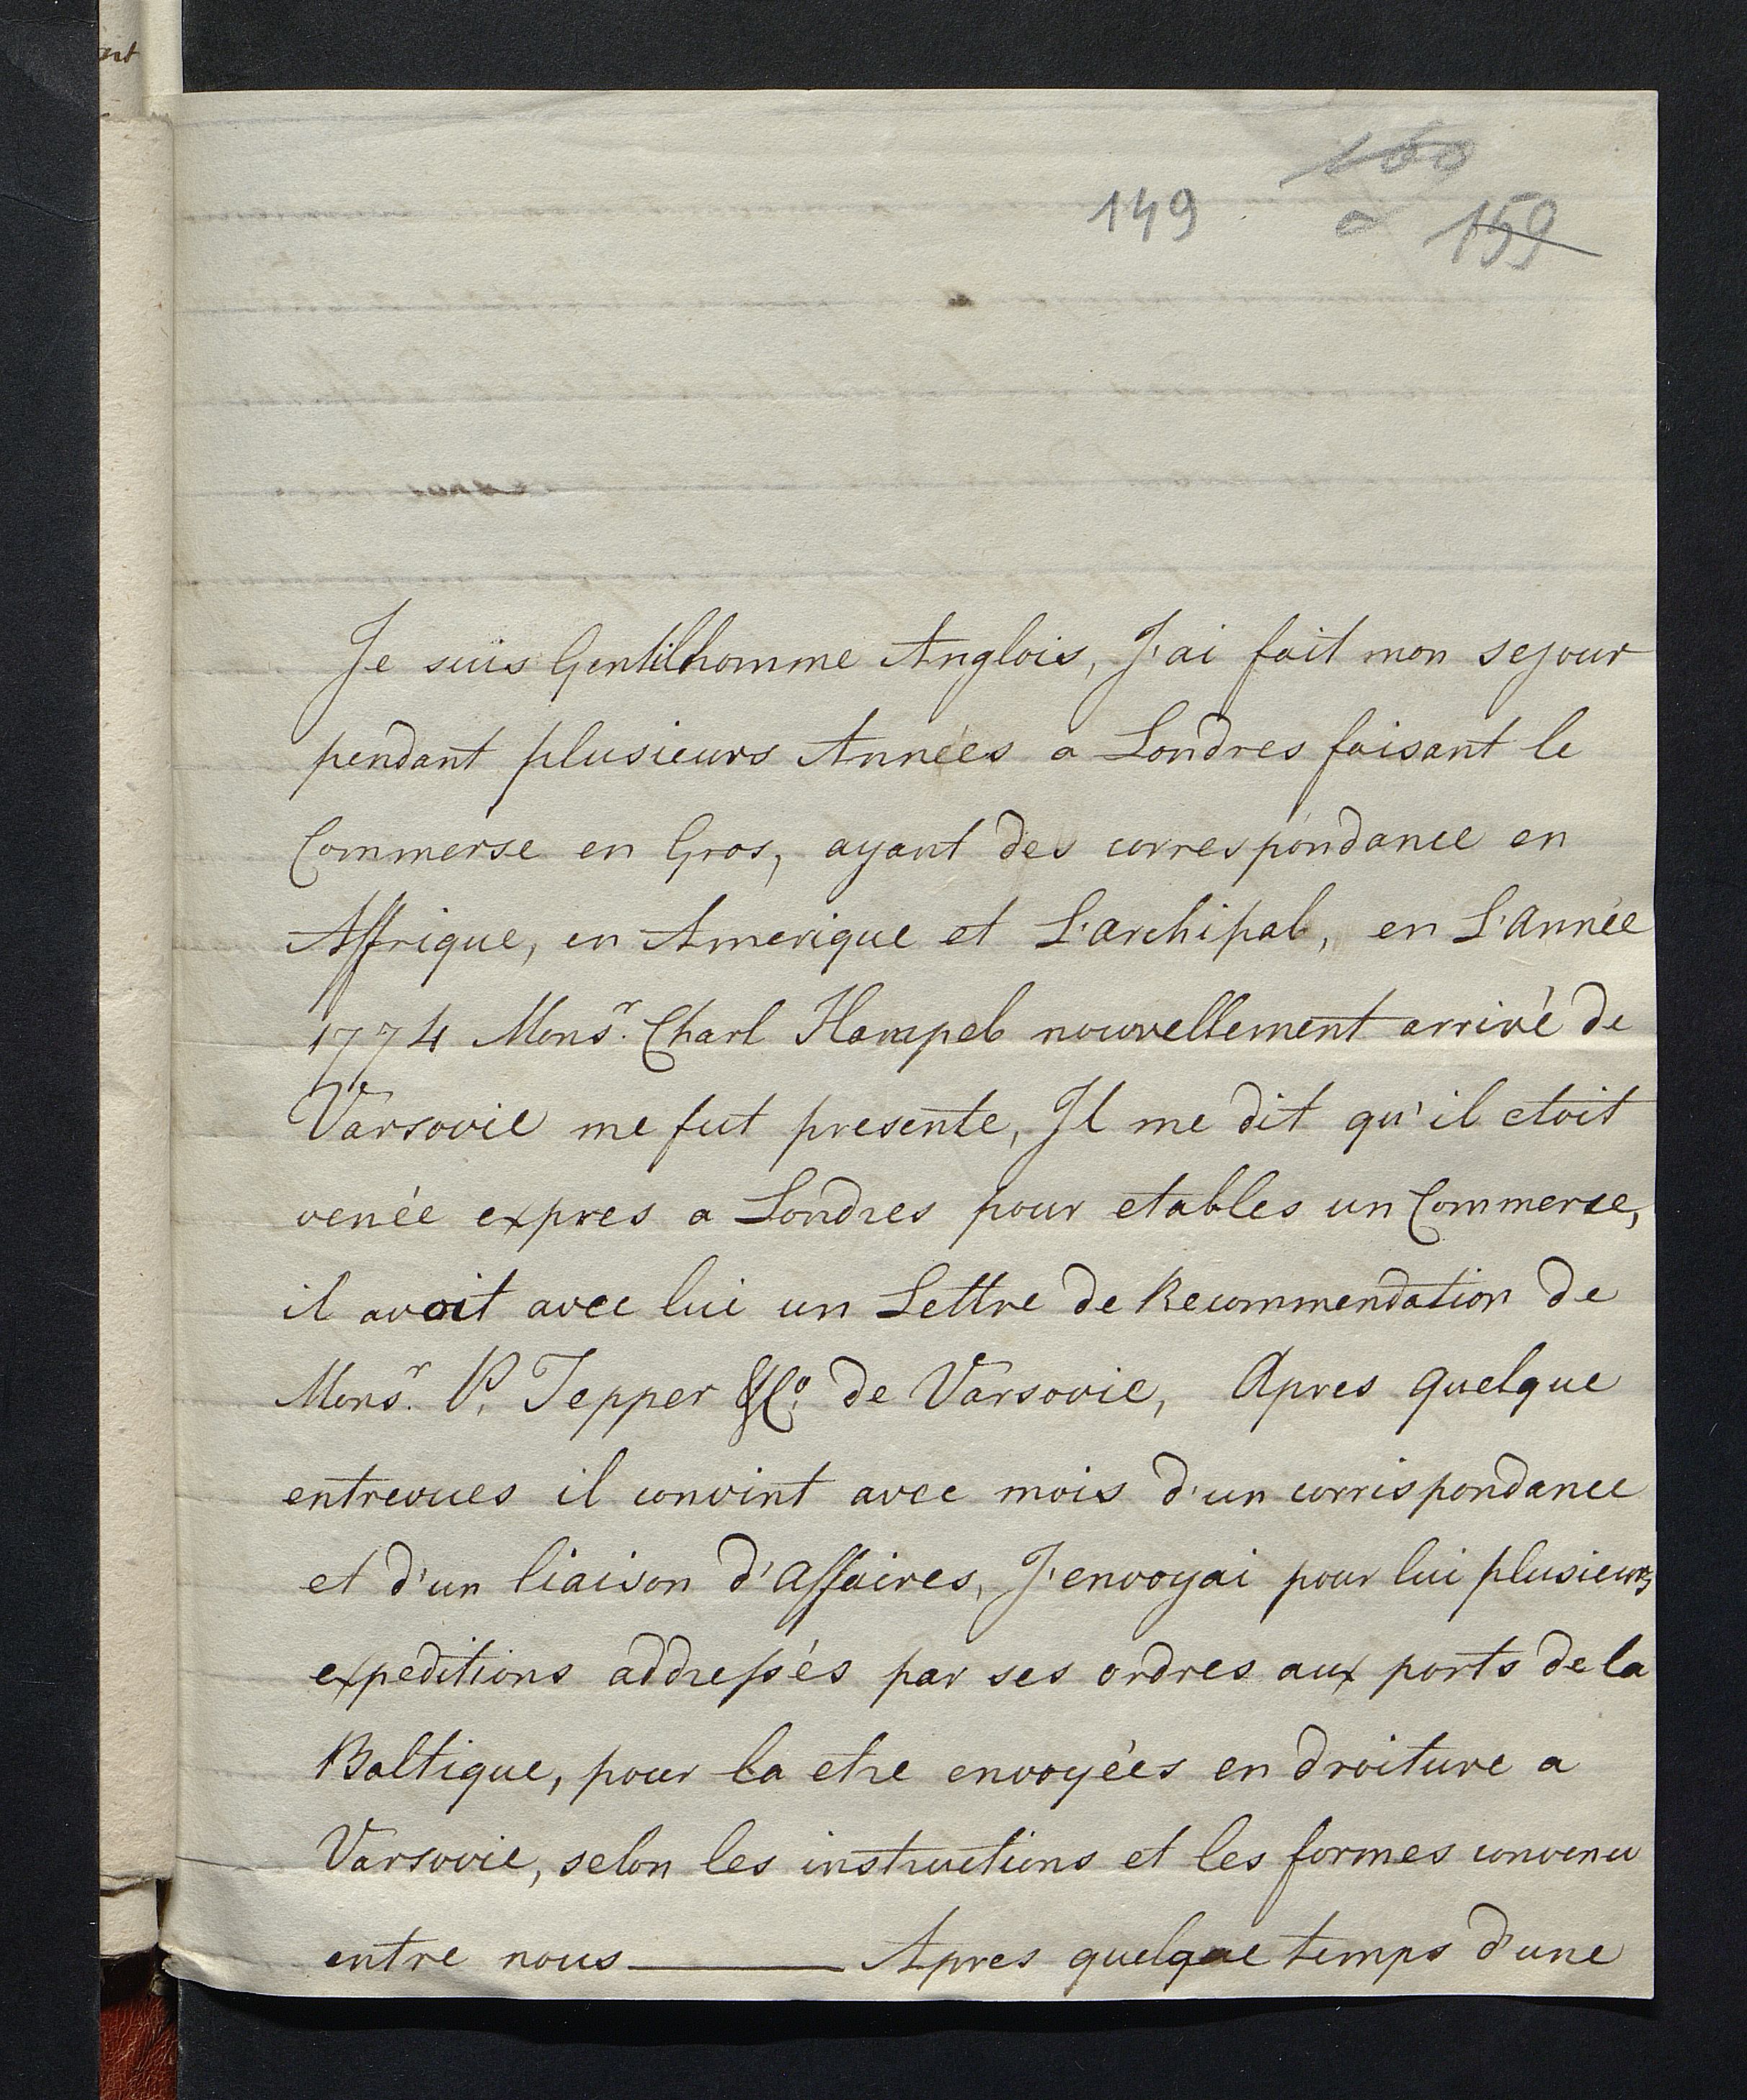 149
159
Je suis Gentilhomme Anglois, J'ai fait mon sejour
pendant plusieurs Années a Londres faisant le
Commerse en Gros, ayant des correspondance en
Affrique, en Amerique et L'archipal, en L'année
1774 Monsr. Charl Hampel nouvellement arrivé de
Varsovie me fut presente, Il me dit qu'il etoit
venée expres a Londres pour etables un Commerse,
il avoit avec lui un Lettre de Recommendation de
Monsr. P. Tepper & Co. de Varsovie, Apres quelque
entrevues il convint avec mois d'un corrispondance
et d'un liaison d'affaires, J'envoyai pour lui plusieurs
expeditions addressés par ses ordres aux ports de la
Baltique, pour la etre envoyées en droiture a
Varsovie, selon les instructions et les formes convenu
entre nous ——— Apres quelque temps d'une